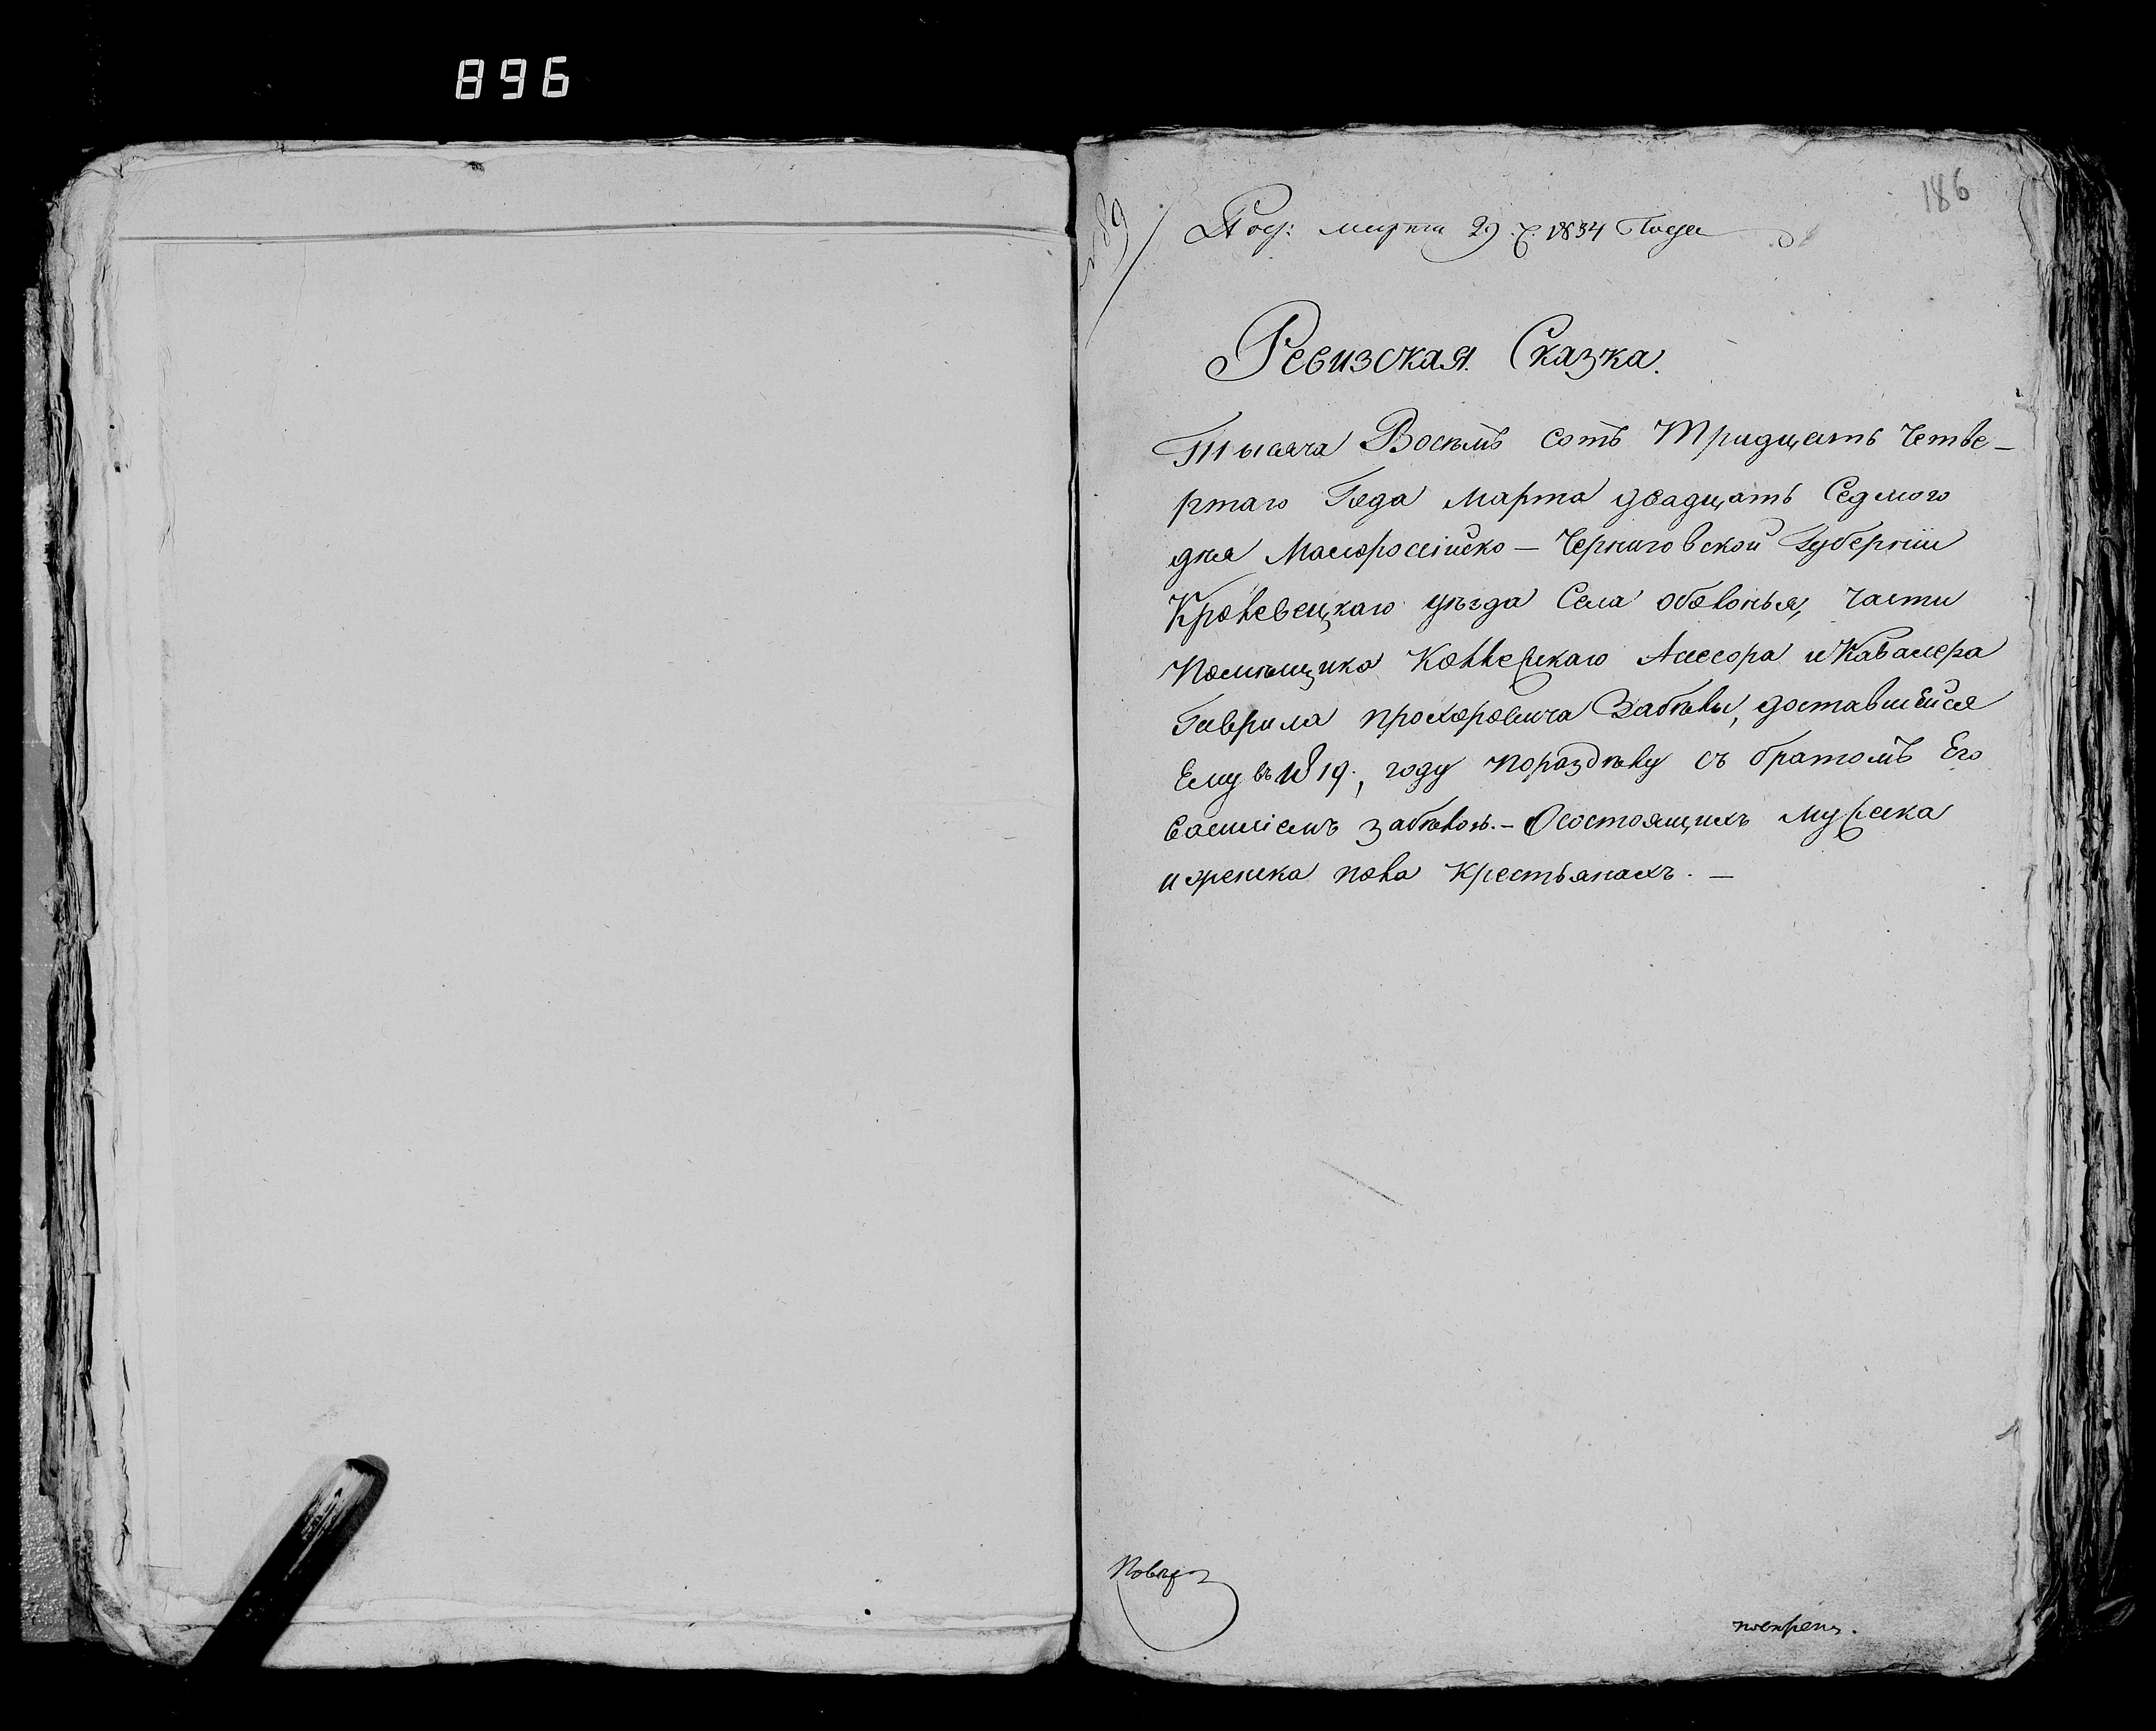 896
186
№ 89
Под: марта 29 ч. 1834 года
Ревизская Сказка.
Тысяча Восемъ сотъ Тридцать Четве-
ртаго Года Марта двадцать Седмого
дня Малоросійско — Черниговской Губерніи
Кролевецкаго уѣзда Села оболонья, части
Помѣщика Коллежскаго Асесора и Кавалера
Гаврила прохоровича Забѣлы, доставшейся
Ему въ 1819, году поразделу съ братомъ Его
Василіемъ забѣлою. — Осостоящихъ мужеска
и женска пола крестьянахъ. —